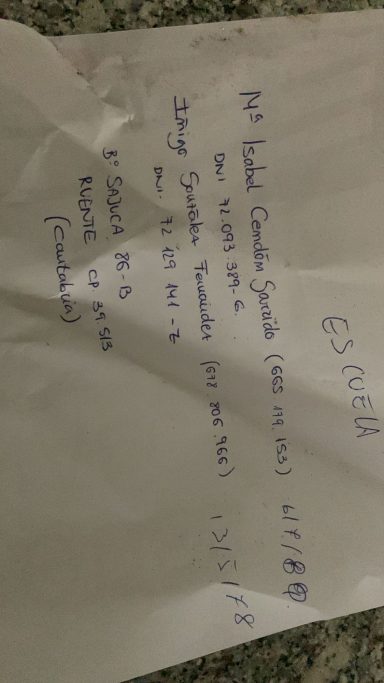 ESCUELA
Mª Isabel Cendón Garrido (665 179.153) 6/7/80
DNI 72.093.389-G.
Iñigo González Fernández (678.806.966) 13/5/78
DNI. 72 129 141-Z
Bº SAJUCA. 86-B
RUENTE CP 39.513
(Cantabria)